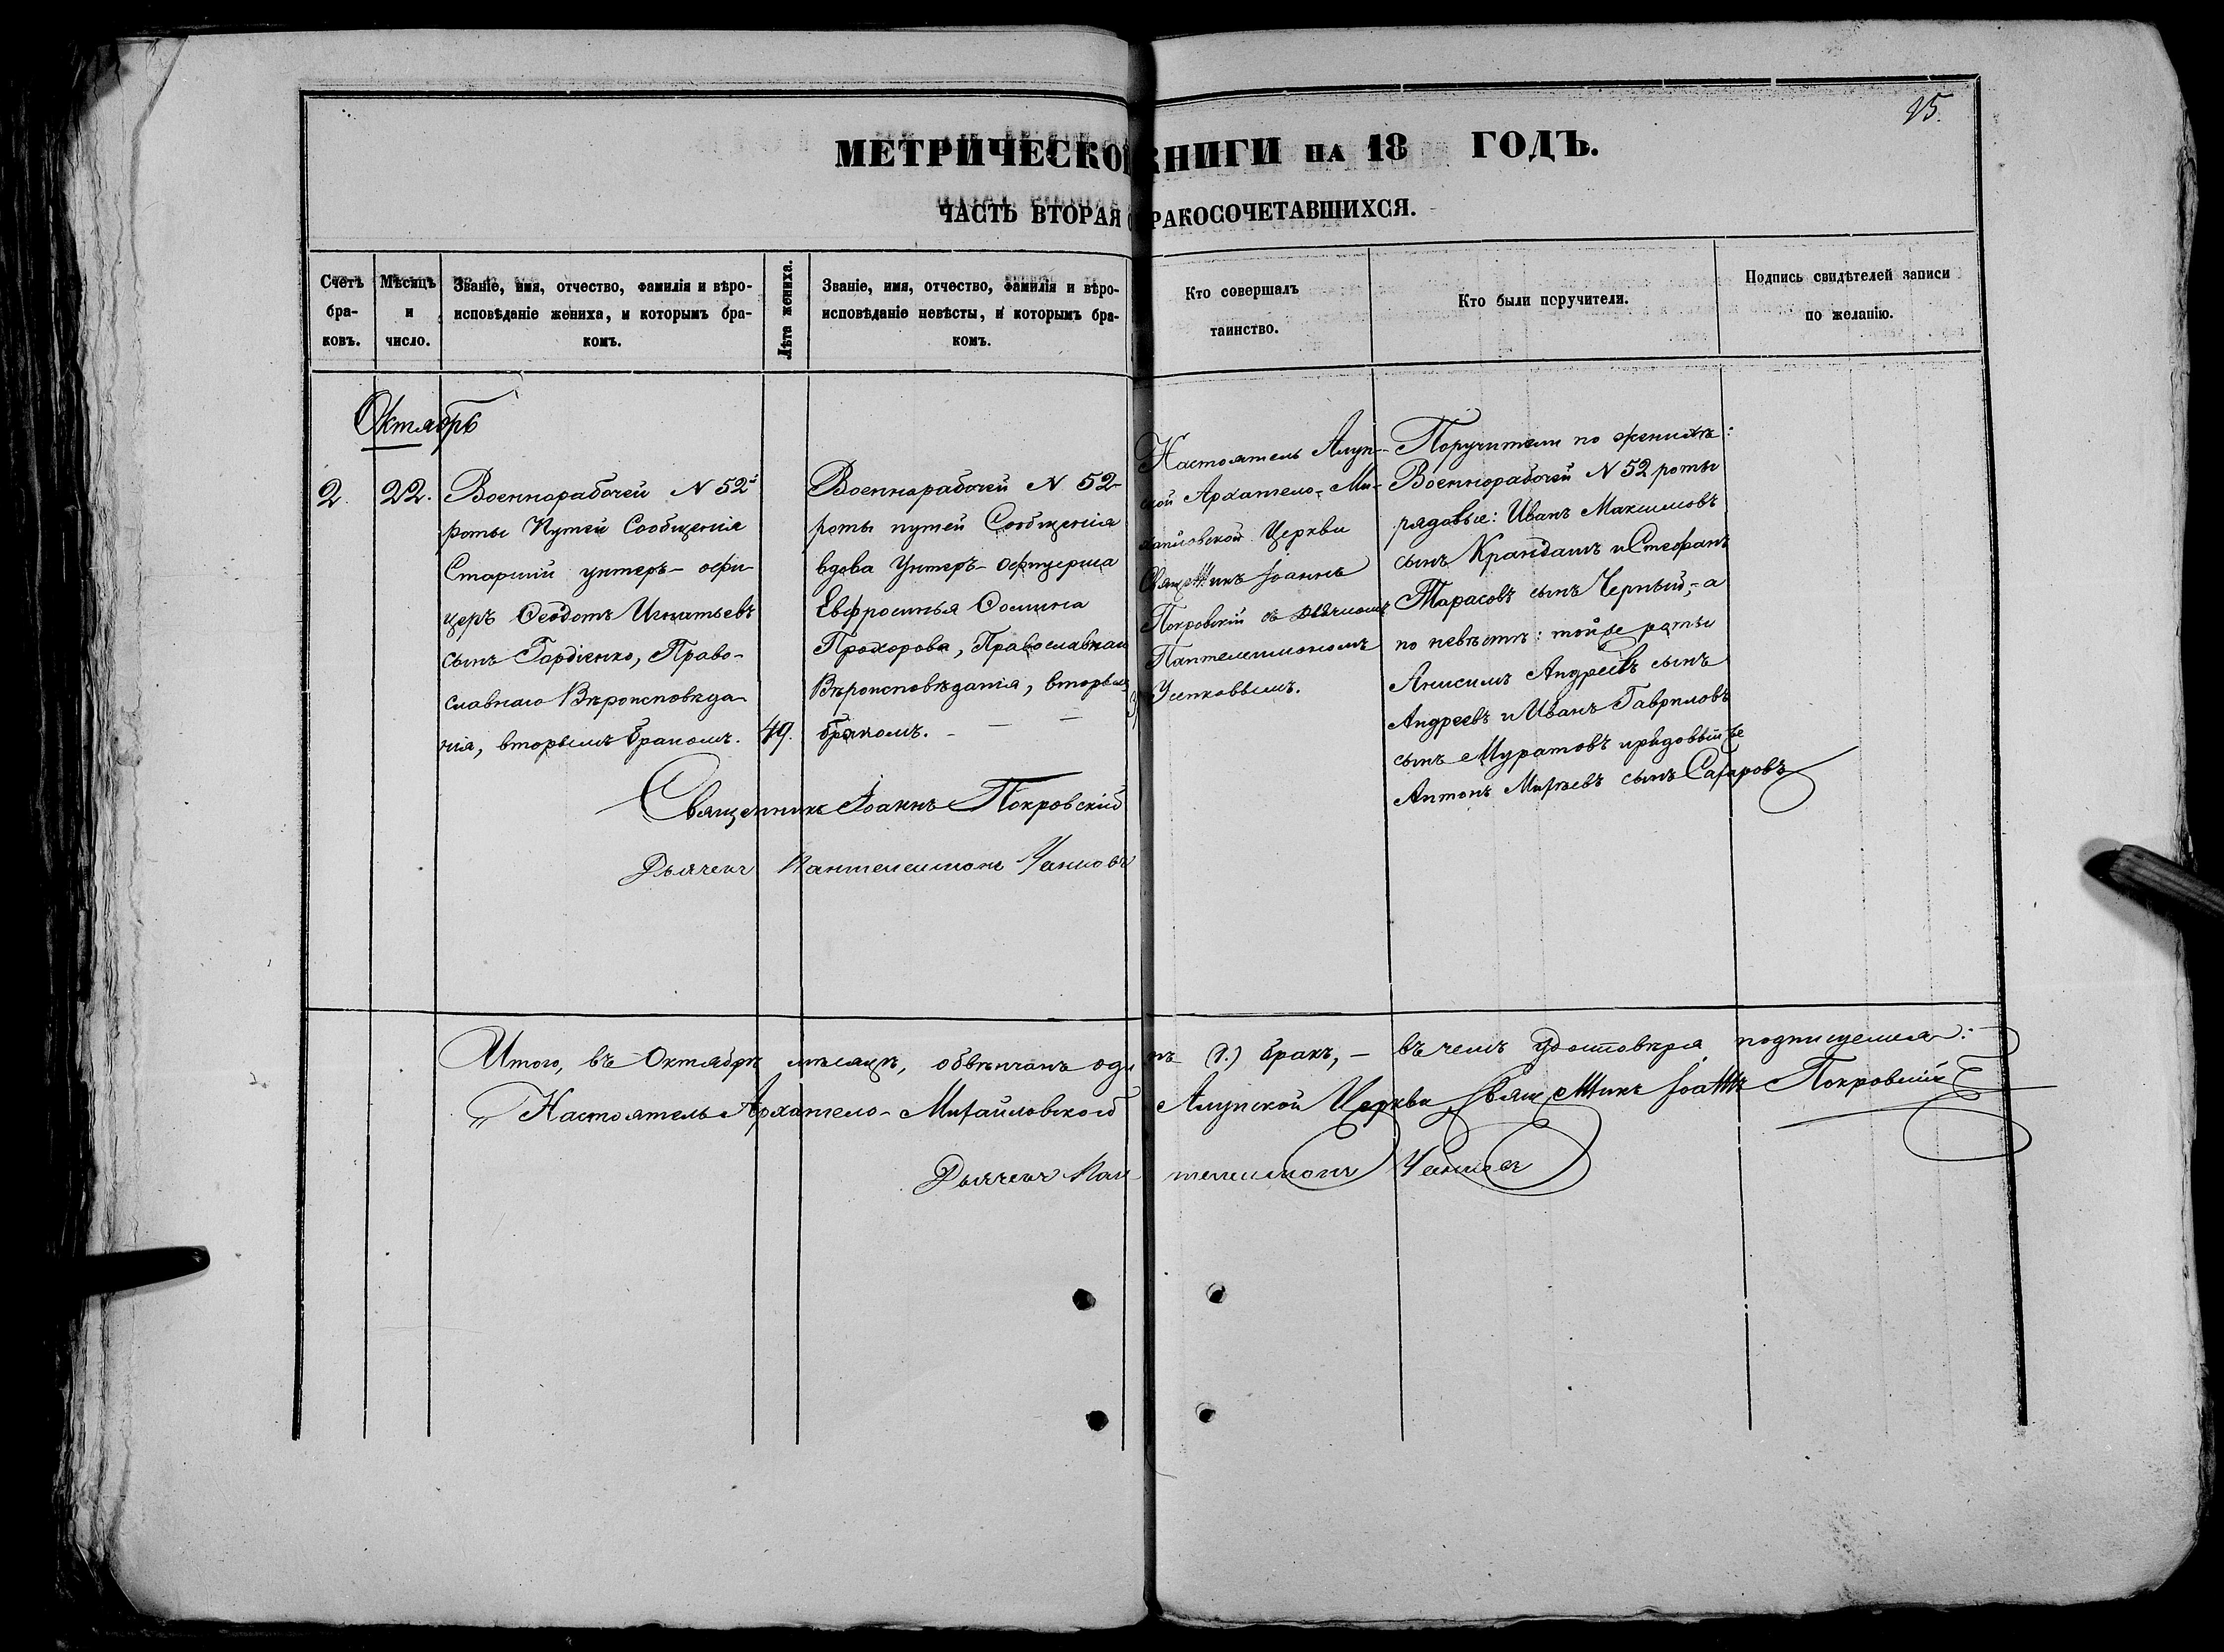 25.
МЕТРИЧЕСКОЙ КНИГИ НА 18 ГОДЪ.
ЧАСТЬ ВТОРАЯ О БРАКОСОЧЕТАВШИХСЯ.
Счетъ
бра-
ковъ.
Мѣсяцъ
и
число.
Званіе, имя, отчество, фамилія и вѣро-
исповѣданіе жениха, и которымъ бра-
комъ.
Лѣта жениха.
Званіе, имя, отчество, фамилія и вѣро-
исповѣданіе невѣсты, и которымъ бра-
комъ.
Кто совершалъ
таинство.
Кто были поручители.
Подпись свидѣтелей записи
по желанію.
Октябрь
2.
22.
Военнорабочей N 52й
роты Путей Сообщенія
Старшій унтеръ-офи-
церъ Ѳеодотъ Игнатьевъ
сынъ Гордіенко, Право-
славнаго Вѣроисповѣда-
нія, вторымъ бракомъ.
49.
Военнорабочей N 52-
роты путей Сообщенія
вдова Унтеръ-Офицерша
Евфросинья Ѳомина
Прохорова, Православнаго
Вѣроисповѣданія, вторымъ
бракомъ.
Настоятель Алуп-
ской Архангело-Ми-
хайловской Церкви
Священникъ Іоаннъ
Покровскій съ дьячкомъ
Пантелеимономъ
Поручители по женихѣ:
Военнорабочей N 52 роты
рядовые: Иванъ Максимовъ
сынъ Крандашъ и Стефанъ
Тарасовъ сынъ Черный,-а
по невѣстѣ: той же роты
Анисимъ Андреевъ сынъ
Андреевъ и Иванъ Гавриловъ
сынъ Муратовъ и рядовый
Антонъ сынъ Сахаровъ
Священникъ Іоаннъ Покровскій
Дьячекъ Пантелеимонъ
Итого, въ Октябрѣ мѣсяцѣ, обвѣнчанъ одинъ (1.) бракъ,- въ чемъ удостовѣряя подписуемся:
Настоятель Архангело-Михайловской Алупской Церкви Священникъ Іоаннъ Покровскій
Дьячекъ Пантелеимонъ